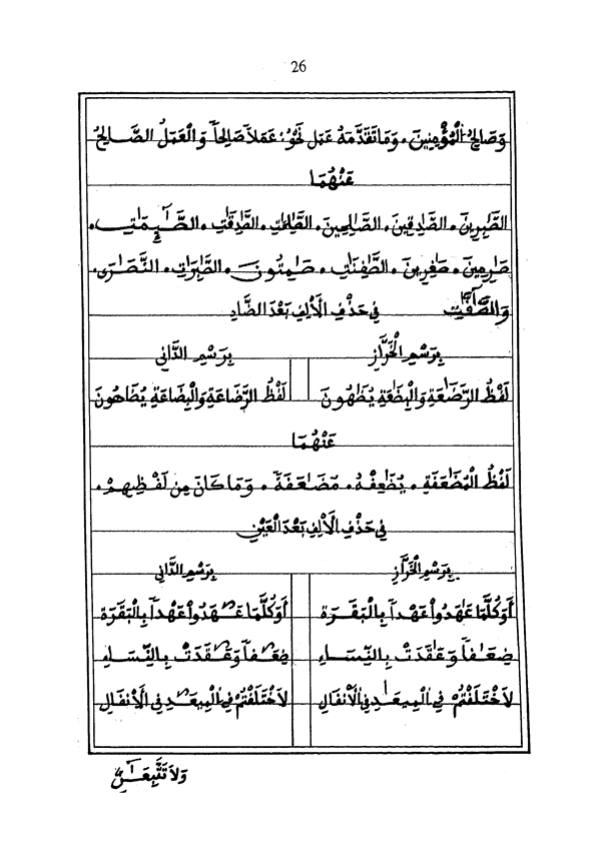 26
وَصَالِحُ الْمُؤْمِنِينَ. وَمَا تَقَدَّمَهُ عَمَل نَحْوُ: عَمَلاً صَالِحاً وَالْعَمَلُ الصَّـٰلِحُ
عَنْهُمَا
الصَّٰبِرِينَ. الصَّٰدِقِينَ. الصَّٰلِحِينَ. الصَّٰلِحَٰتِ. الصَّٰدِقَٰتِ. الصَّـٰٓئِمَٰتِ.
صَٰرِمِينَ. صَٰغِرِينَ. الصَّٰفِنَٰتِ. صَٰمِتُونَ. الصَّٰبِرَٰتِ. النَّصَٰرَىٰ.
وَالصَّٰٓفَّٰتِ
فِي حَذْفِ الْأَلِفِ بَعْدَ الضَّادِ
بِرَسْمِ الْخَرَّازِ بِرَسْمِ الدَّانِي
لَفْظُ الرَّضَٰعَةِ وَالْبِضَٰعَةِ يُضَٰهُونَ لَفْظُ الرَّضَاعَةِ وَالْبِضَاعَةِ يُضَاهُونَ
عَنْهُمَا
لَفْظُ الْمُضَٰعَفَةِ. يُضَٰعِفْهُ. مُضَٰعَفَةً. وَمَا كَانَ مِن لَفْظِهِمْ.
فِي حَذْفِ الْأَلِفِ بَعْدَ الْعَيْنِ
بِرَسْمِ الْخَرَّازِ بِرَسْمِ الدَّانِي
أَوَكُلَّمَا عَٰهَدُواْ عَهْداً بِالْبَقَرَةِ أَوَكُلَّمَا عَٰهَدُواْ عَهْداً بِالْبَقَرَةِ
ضِعَٰفاً وَعَٰقَدَتْ بِالنِّسَاءِ ضِعَٰفاً وَعَٰقَدَتْ بِالنِّسَاءِ
لَاخْتَلَفْتُمْ فِي الْمِيعَٰدِ فِي الْأَنْفَالِ لَاخْتَلَفْتُمْ فِي الْمِيعَٰدِ فِي الْأَنْفَالِ
وَلَا تَتَّبِعَآنِّ